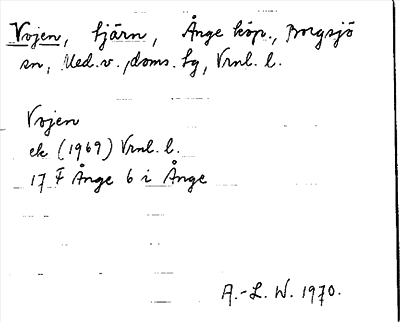 Vojen, tjärn, Ånge köp., Borgsjö
sn, Med. v., doms. sg, Vrnl. l.
Vojen
ek (1969) Vrnl. l.
17 F Ånge 6 i Ånge
A.-L. W. 1970.